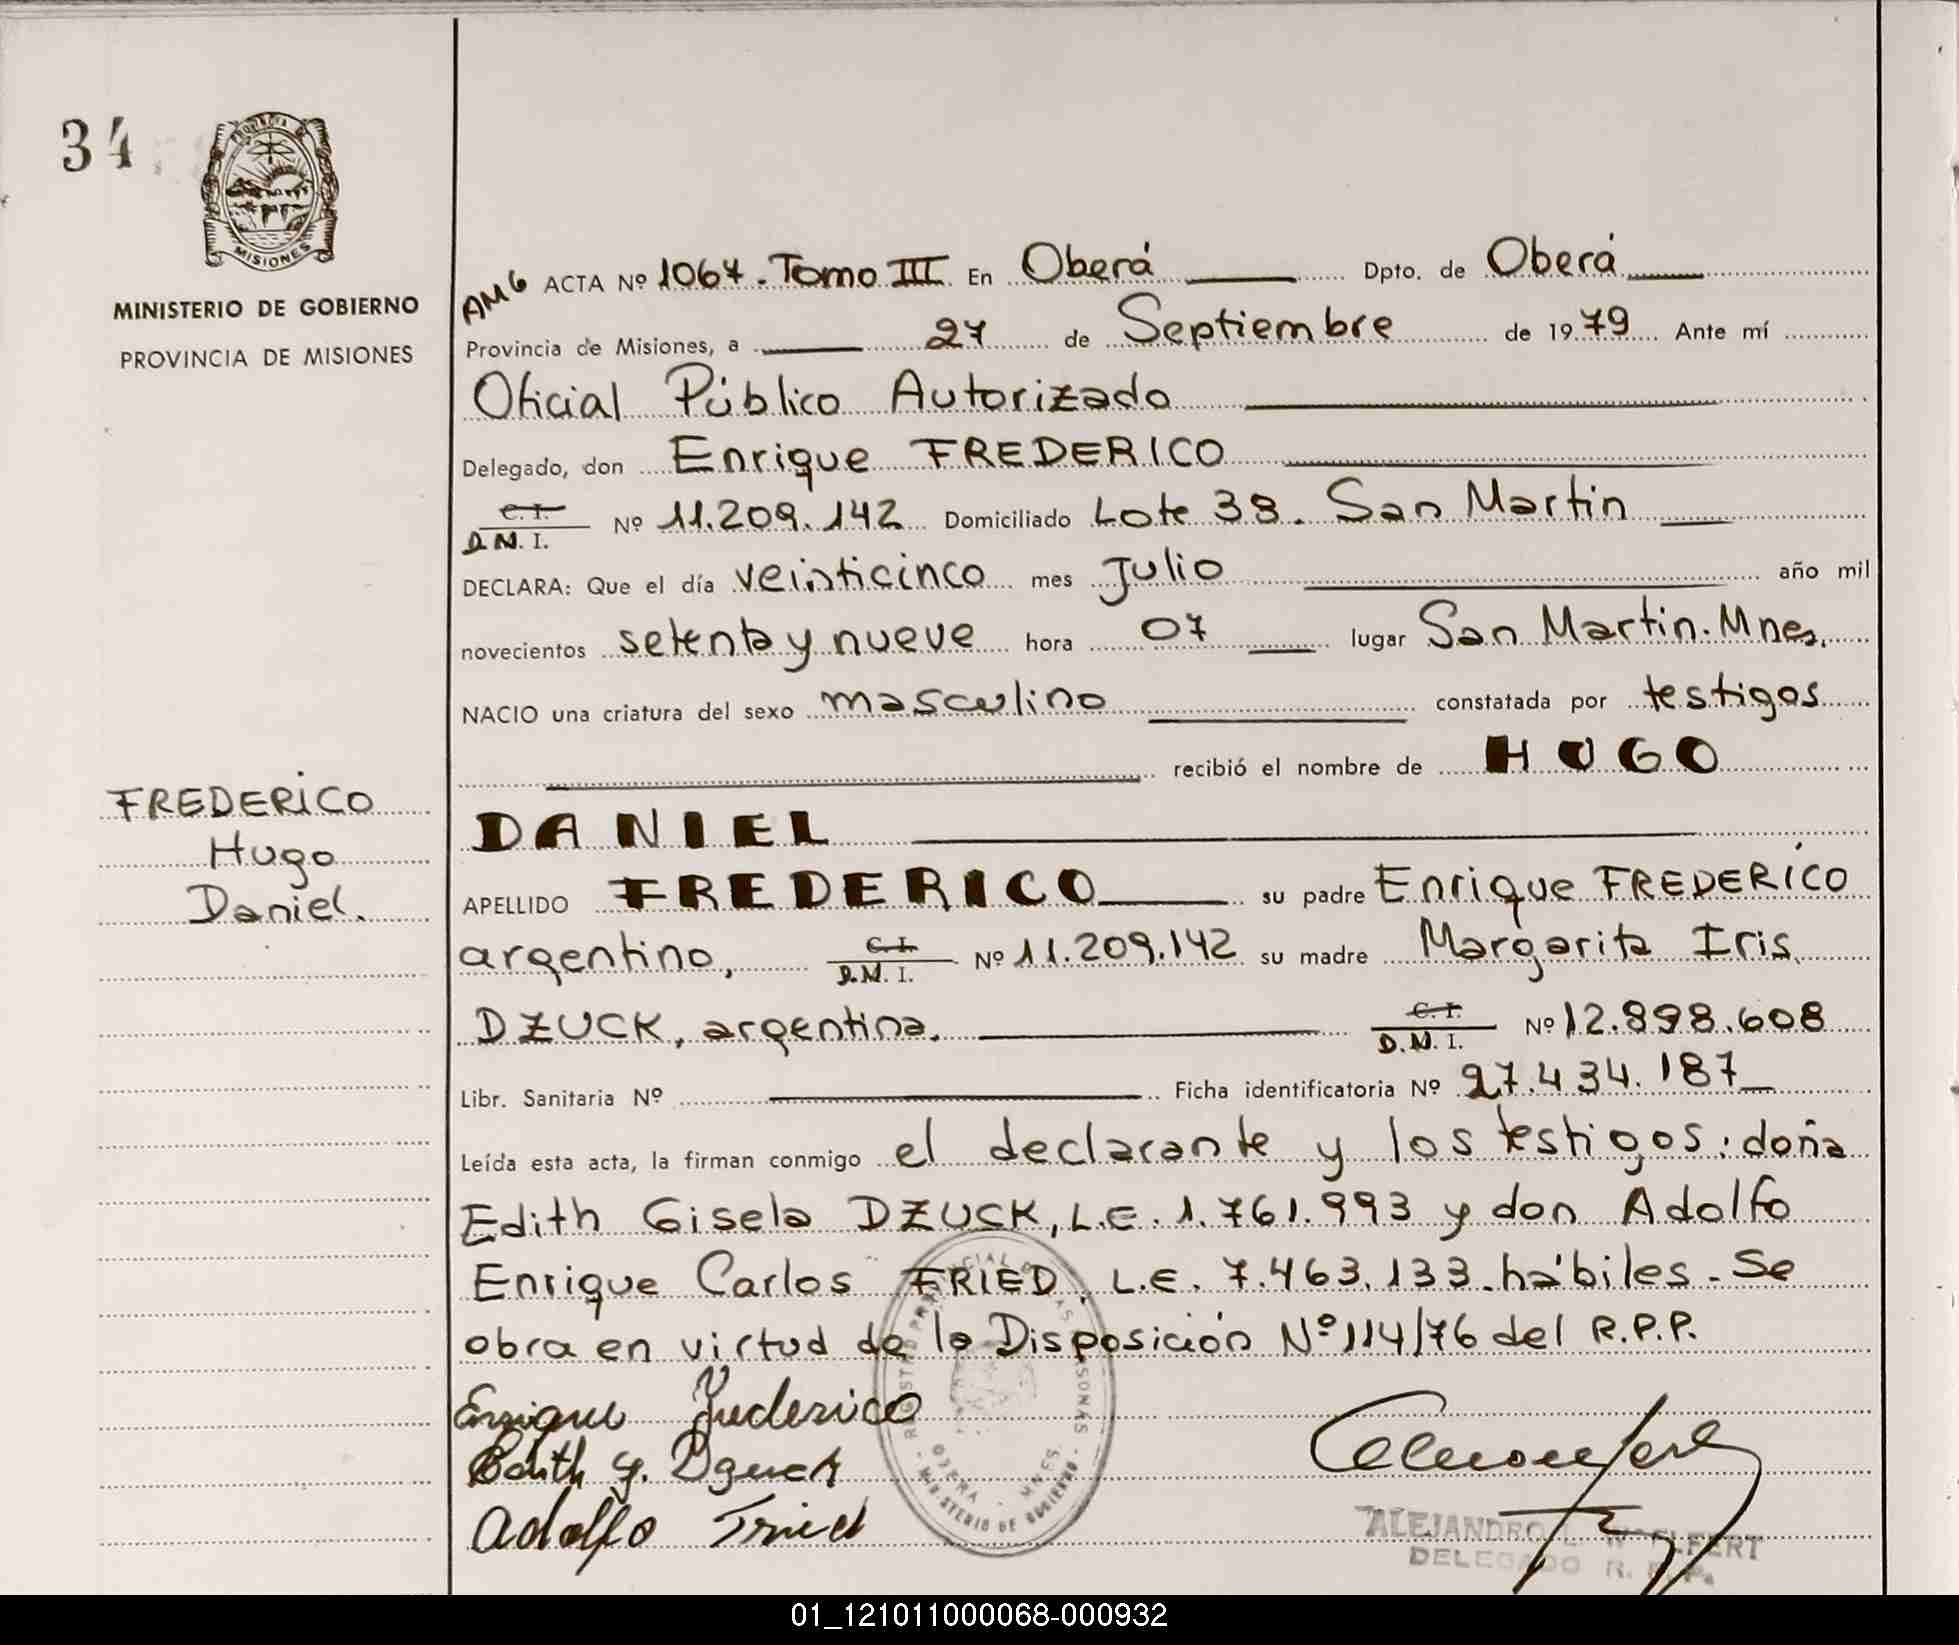 34
PROVINCIA DE
MISIONES
MINISTERIO DE GOBIERNO
PROVINCIA DE MISIONES
FREDERICO
Hugo
Daniel.
AMG ACTA Nº 1067. Tomo III En Oberá Dpto. de Oberá
Provincia de Misiones, a 27 de Septiembre de 1979 Ante mí
Oficial Público Autorizado
Delegado, don Enrique FREDERICO
C. I.
D.N. I. Nº 11.209.142 Domiciliado Lote 38. San Martin
DECLARA: Que el día veinticinco mes Julio año mil
novecientos setenta y nueve hora 07 lugar San Martin. Mnes.
NACIO una criatura del sexo masculino constatada por testigos
recibió el nombre de HUGO
DANIEL
APELLIDO FREDERICO su padre Enrique FREDERICO
argentino, C. I. D.N. I. Nº 11.209.142 su madre Margarita Iris
DZUCK, argentina. C. I. D.N. I. Nº 12.898.608
Libr. Sanitaria Nº Ficha identificatoria Nº 27.434.187
Leída esta acta, la firman conmigo el declarante y los testigos: doña
Edith Gisela DZUCK, L.E. 1.761.993 y don Adolfo
Enrique Carlos FRIED, L.E. 7.463.133. hábiles. Se
obra en virtud de la Disposición Nº 114/76 del R.P.P.
Enrique Frederico
Edith G. Dzuck
Adolfo Fried
OBERA - MNES.
MINISTERIO DE GOBIERNO
ALEJANDRO
DELEGADO R. P. P.
01_121011000068-000932